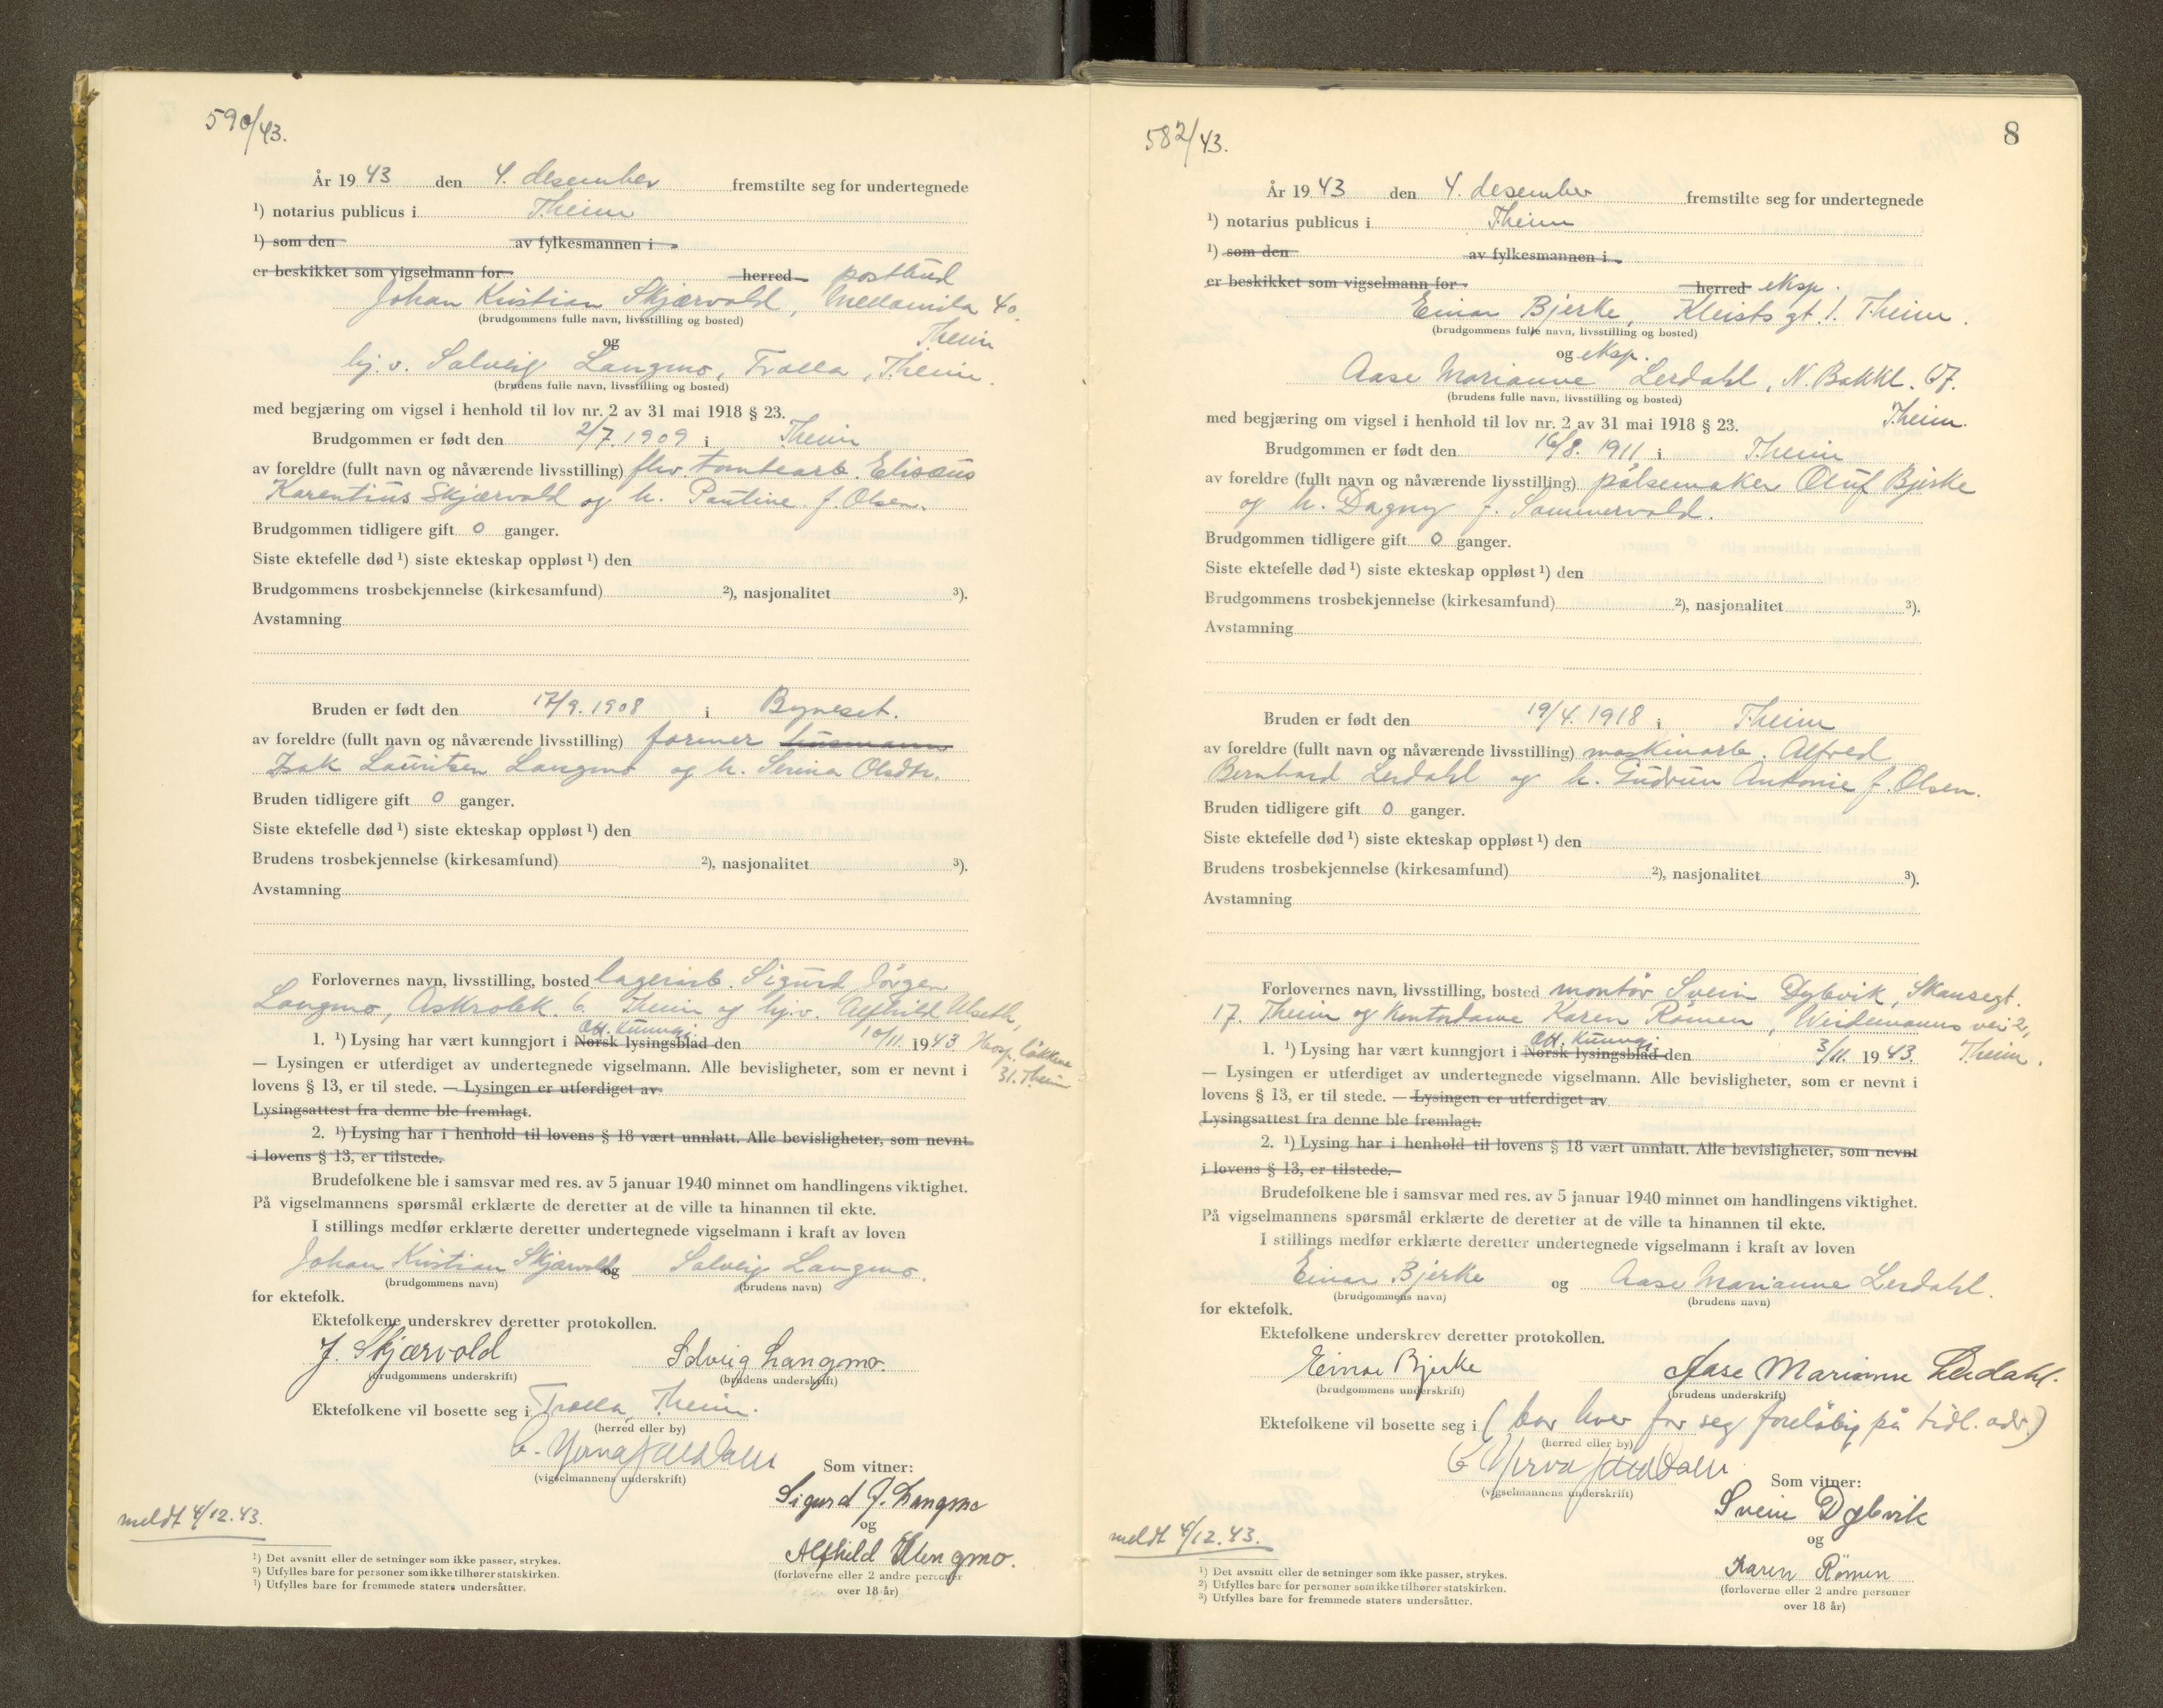 590/43.
År 1943 den 4. desember fremstilte seg for undertegnede
¹) notarius publicus i Theim
¹) som den av fylkesmannen i
er beskikket som vigselmann for herred postbud
Johan Kristian Skjærvold, Mellomila 40.
(brudgommens fulle navn, livsstilling og bosted)
og Theim
hj.v. Solveig Langmo, Trolla, Theim.
(brudens fulle navn, livsstilling og bosted)
med begjæring om vigsel i henhold til lov nr. 2 av 31 mai 1918 § 23.
Brudgommen er født den 2/7. 1909 i Theim
av foreldre (fullt navn og nåværende livsstilling) fhv. tomtearb. Elisæus
Karentius Skjærvold og h. Pauline f. Olsen.
Brudgommen tidligere gift 0 ganger.
Siste ektefelle død ¹) siste ekteskap oppløst ¹) den
Brudgommens trosbekjennelse (kirkesamfund) ²), nasjonalitet ³).
Avstamning
Bruden er født den 17/9. 1908 i Byneset.
av foreldre (fullt navn og nåværende livsstilling) former husmann
Isak Lauritsen Langmo og h. Serina Olsdtr.
Bruden tidligere gift 0 ganger.
Siste ektefelle død ¹) siste ekteskap oppløst ¹) den
Brudens trosbekjennelse (kirkesamfund) ²), nasjonalitet ³).
Avstamning
Forlovernes navn, livsstilling, bosted lagerarb. Sigurd Jörgen
Langmo, Askrolek. 6. Theim og hj.v. Alfhild Ulseth,
Off. Kunngj.
1. ¹) Lysing har vært kunngjort i Norsk lysingsblad den 10/11. 1943 Hosp. løkkene
— Lysingen er utferdiget av undertegnede vigselmann. Alle bevisligheter, som er nevnt i 31. Theim
lovens § 13, er til stede. — Lysingen er utferdiget av
Lysingsattest fra denne ble fremlagt.
2. ¹) Lysing har i henhold til lovens § 18 vært unnlatt. Alle bevisligheter, som nevnt
i lovens § 13, er tilstede.
Brudefolkene ble i samsvar med res. av 5 januar 1940 minnet om handlingens viktighet.
På vigselmannens spørsmål erklærte de deretter at de ville ta hinannen til ekte.
I stillings medfør erklærte deretter undertegnede vigselmann i kraft av loven
Johan Kristian Skjærvold og Solveig Langmo.
(brudgommens navn) (brudens navn)
for ektefolk.
Ektefolkene underskrev deretter protokollen.
J. Skjærvold Solveig Langmo.
(brudgommens underskrift) (brudens underskrift)
Ektefolkene vil bosette seg i Trolla, Theim.
(herred eller by)
(vigselmannens underskrift) Som vitner:
Sigurd J. Langmo
og
meldt 4/12.43.
Alfhild Langmo.
(forloverne eller 2 andre personer
over 18 år)
¹) Det avsnitt eller de setninger som ikke passer, strykes.
²) Utfylles bare for personer som ikke tilhører statskirken.
³) Utfylles bare for fremmede staters undersåtter.
8
582/43.
År 1943 den 4. desember fremstilte seg for undertegnede
¹) notarius publicus i Theim
¹) som den av fylkesmannen i
er beskikket som vigselmann for herred eksp.
Einar Bjerke, Kleists gt. 1. Theim.
(brudgommens fulle navn, livsstilling og bosted)
og eksp.
Aase Marianne Lerdahl, N. Bakkl. 67.
(brudens fulle navn, livsstilling og bosted)
med begjæring om vigsel i henhold til lov nr. 2 av 31 mai 1918 § 23. Theim.
Brudgommen er født den 16/8. 1911 i Theim
av foreldre (fullt navn og nåværende livsstilling) pølsemaker Oluf Bjerke
og h. Dagny f. Sommervold.
Brudgommen tidligere gift 0 ganger.
Siste ektefelle død ¹) siste ekteskap oppløst ¹) den
Brudgommens trosbekjennelse (kirkesamfund) ²), nasjonalitet ³).
Avstamning
Bruden er født den 19/4. 1918 i Theim
av foreldre (fullt navn og nåværende livsstilling) maskinarb. Alfred
Bernhard Lerdahl og h. Gudrun Antonie f. Olsen.
Bruden tidligere gift 0 ganger.
Siste ektefelle død ¹) siste ekteskap oppløst ¹) den
Brudens trosbekjennelse (kirkesamfund) ²), nasjonalitet ³).
Avstamning
Forlovernes navn, livsstilling, bosted montör Svein Dybvik, Skansegt.
17. Theim og Kontordame Karen Römen, Weidemanns vei 2,
Off. Kunngj.
1. ¹) Lysing har vært kunngjort i Norsk lysingsblad den 3/11. 1943. Theim.
— Lysingen er utferdiget av undertegnede vigselmann. Alle bevisligheter, som er nevnt i
lovens § 13, er til stede. — Lysingen er utferdiget av
Lysingsattest fra denne ble fremlagt.
2. ¹) Lysing har i henhold til lovens § 18 vært unnlatt. Alle bevisligheter, som nevnt
i lovens § 13, er tilstede.
Brudefolkene ble i samsvar med res. av 5 januar 1940 minnet om handlingens viktighet.
På vigselmannens spørsmål erklærte de deretter at de ville ta hinannen til ekte.
I stillings medfør erklærte deretter undertegnede vigselmann i kraft av loven
Einar Bjerke og Aase Marianne Lerdahl.
(brudgommens navn) (brudens navn)
for ektefolk.
Ektefolkene underskrev deretter protokollen.
Einar Bjerke Aase Marianne Lerdahl.
(brudgommens underskrift) (brudens underskrift)
Ektefolkene vil bosette seg i (bor hver for seg foreløbig på tidl. adr.)
(herred eller by)
(vigselmannens underskrift) Som vitner:
Svein Dybvik
og
meldt 4/12.43.
Karen Römen
(forloverne eller 2 andre personer
over 18 år)
¹) Det avsnitt eller de setninger som ikke passer, strykes.
²) Utfylles bare for personer som ikke tilhører statskirken.
³) Utfylles bare for fremmede staters undersåtter.